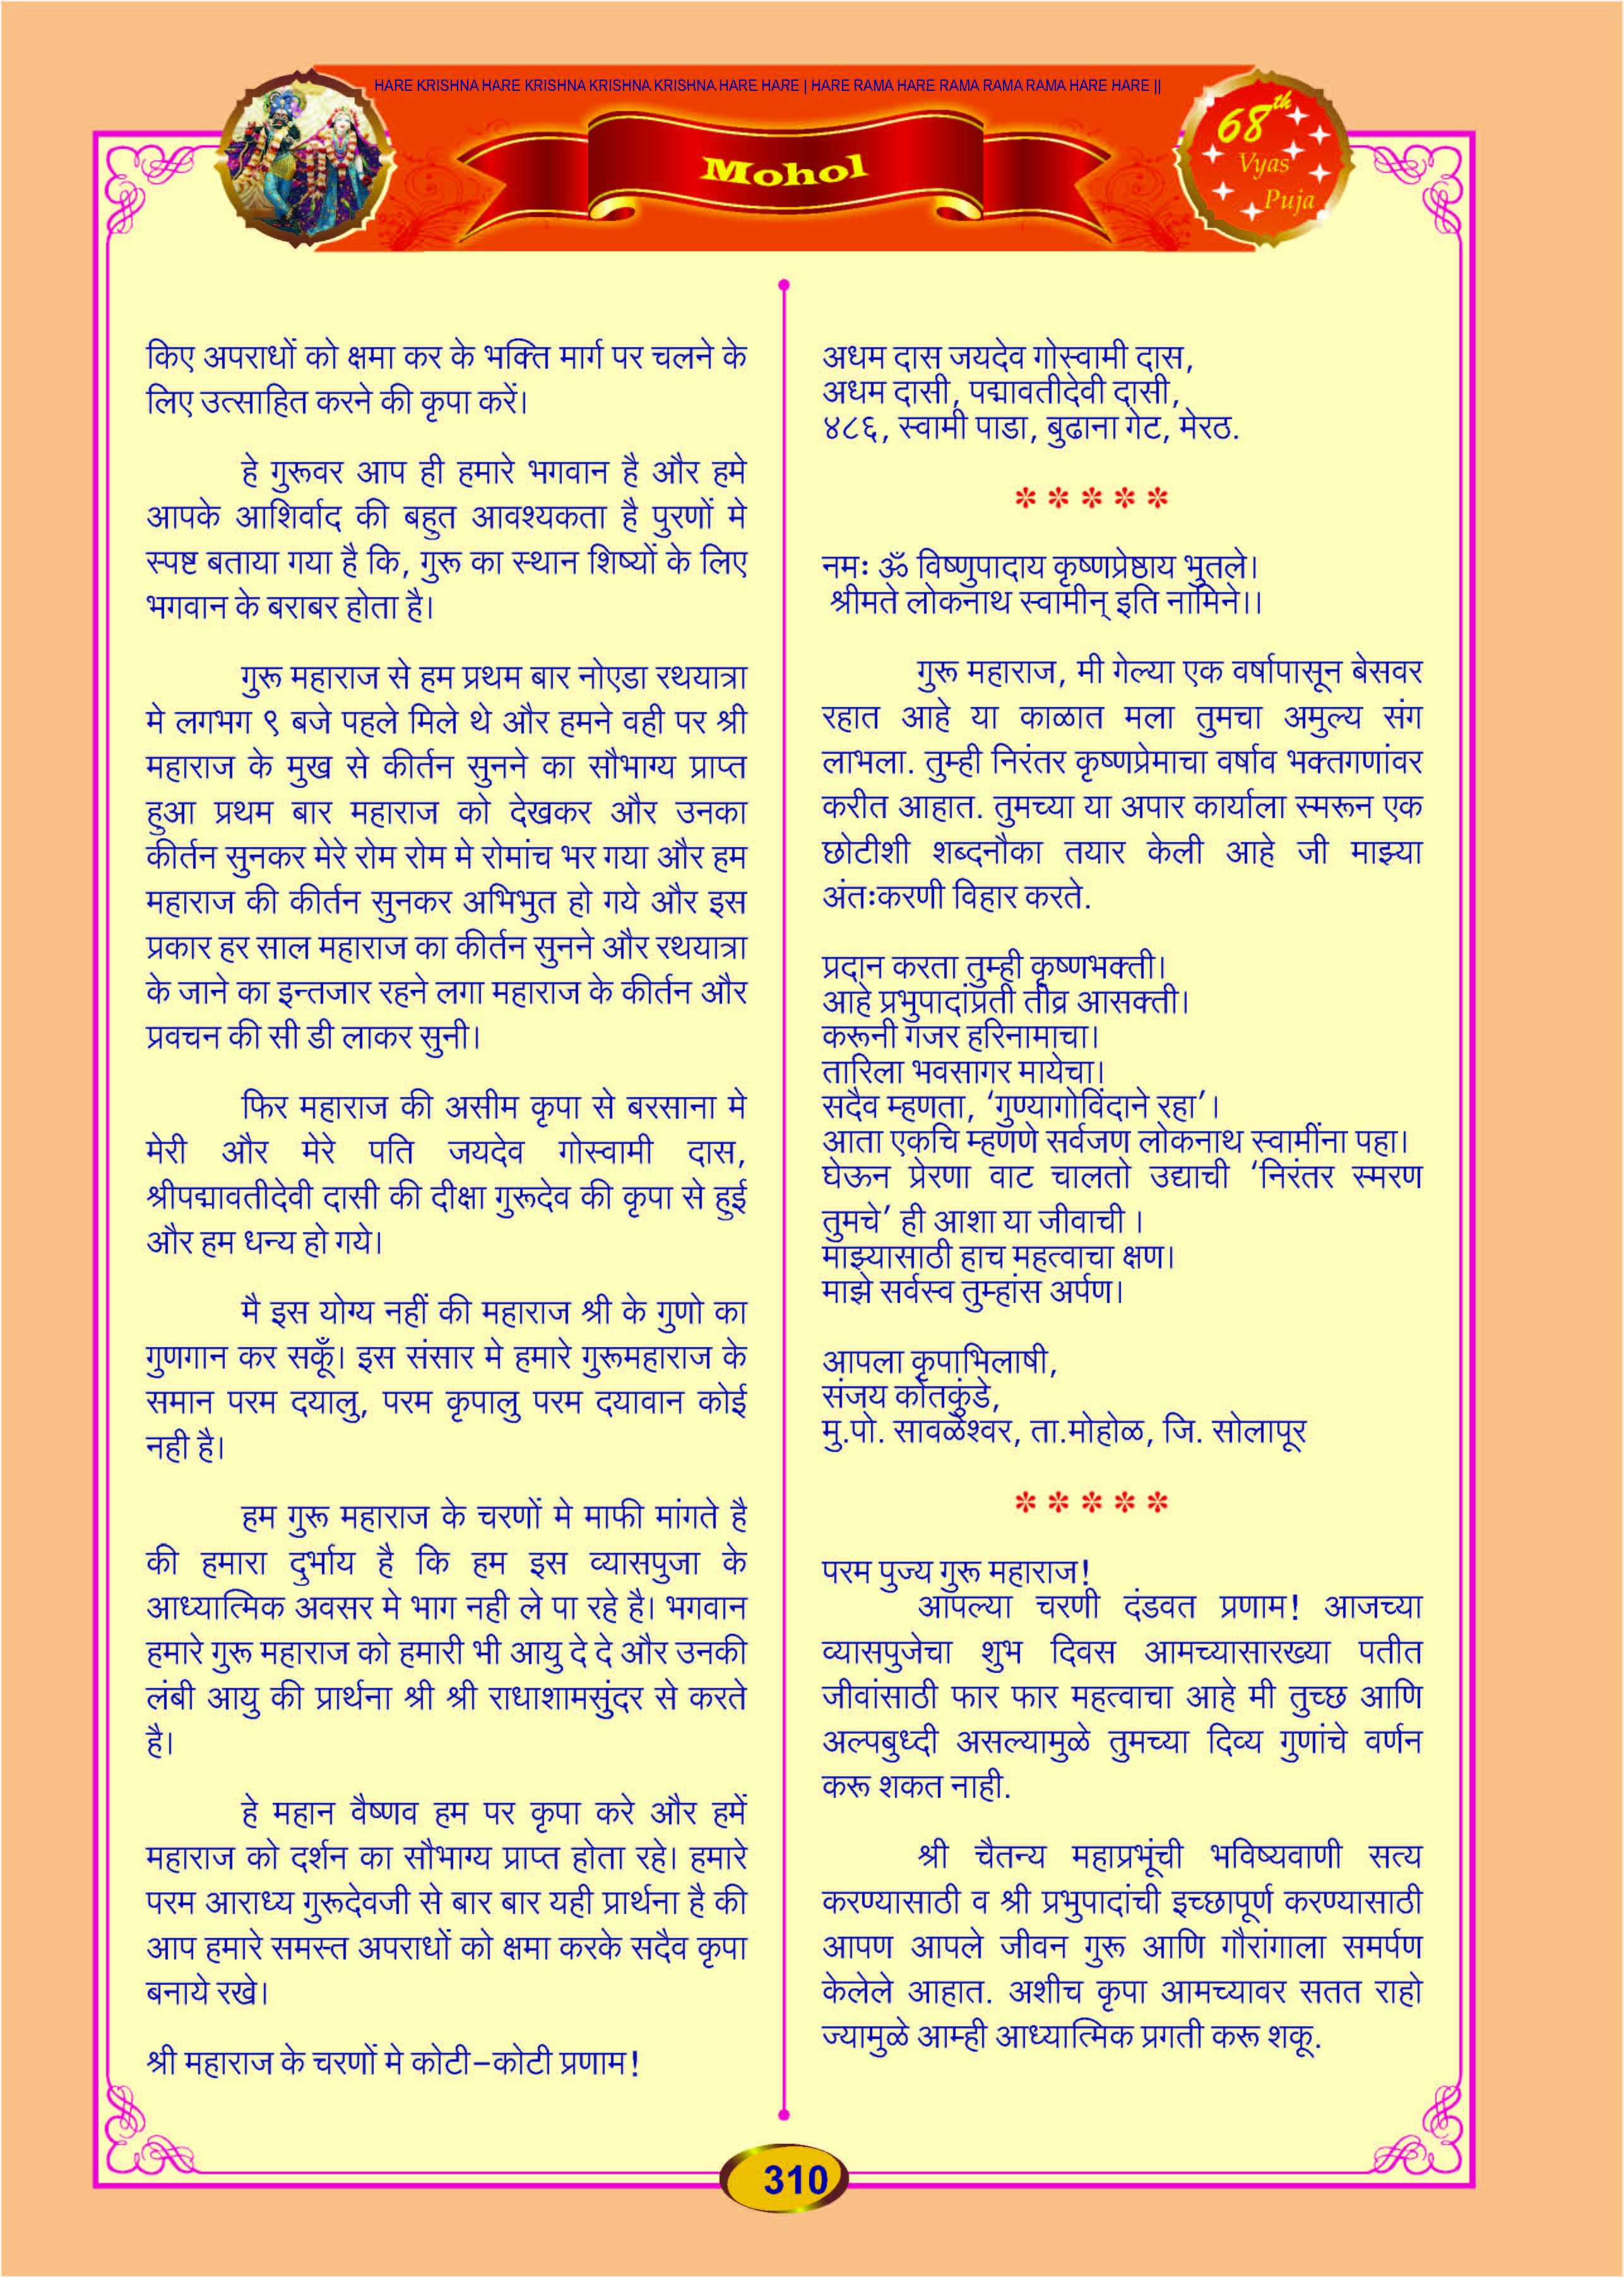 HARE KRISHNA HARE KRISHNA KRISHNA KRISHNA HARE HARE | HARE RAMA HARE RAMA RAMA RAMA HARE HARE ||
Mohol
68th
Vyas
Puja
किए अपराधों को क्षमा कर के भक्ति मार्ग पर चलने के
लिए उत्साहित करने की कृपा करें।
हे गुरूवर आप ही हमारे भगवान है और हमे
आपके आशिर्वाद की बहुत आवश्यकता है पुरणों मे
स्पष्ट बताया गया है कि, गुरू का स्थान शिष्यों के लिए
भगवान के बराबर होता है।
गुरू महाराज से हम प्रथम बार नोएडा रथयात्रा
मे लगभग ९ बजे पहले मिले थे और हमने वही पर श्री
महाराज के मुख से कीर्तन सुनने का सौभाग्य प्राप्त
हुआ प्रथम बार महाराज को देखकर और उनका
कीर्तन सुनकर मेरे रोम रोम मे रोमांच भर गया और हम
महाराज की कीर्तन सुनकर अभिभुत हो गये और इस
प्रकार हर साल महाराज का कीर्तन सुनने और रथयात्रा
के जाने का इन्तजार रहने लगा महाराज के कीर्तन और
प्रवचन की सी डी लाकर सुनी।
फिर महाराज की असीम कृपा से बरसाना मे
मेरी और मेरे पति जयदेव गोस्वामी दास,
श्रीपद्मावतीदेवी दासी की दीक्षा गुरूदेव की कृपा से हुई
और हम धन्य हो गये।
मै इस योग्य नहीं की महाराज श्री के गुणो का
गुणगान कर सकूँ। इस संसार मे हमारे गुरूमहाराज के
समान परम दयालु, परम कृपालु परम दयावान कोई
नही है।
हम गुरू महाराज के चरणों मे माफी मांगते है
की हमारा दुर्भाय है कि हम इस व्यासपुजा के
आध्यात्मिक अवसर मे भाग नही ले पा रहे है। भगवान
हमारे गुरू महाराज को हमारी भी आयु दे दे और उनकी
लंबी आयु की प्रार्थना श्री श्री राधाशामसुंदर से करते
है।
हे महान वैष्णव हम पर कृपा करे और हमें
महाराज को दर्शन का सौभाग्य प्राप्त होता रहे। हमारे
परम आराध्य गुरूदेवजी से बार बार यही प्रार्थना है की
आप हमारे समस्त अपराधों को क्षमा करके सदैव कृपा
बनाये रखे।
श्री महाराज के चरणों मे कोटी-कोटी प्रणाम!
अधम दास जयदेव गोस्वामी दास,
अधम दासी, पद्मावतीदेवी दासी,
४८६, स्वामी पाडा, बुढाना गेट, मेरठ.
* * * * *
नमः ॐ विष्णुपादाय कृष्णप्रेष्ठाय भुतले।
श्रीमते लोकनाथ स्वामीन् इति नामिने।।
गुरू महाराज, मी गेल्या एक वर्षापासून बेसवर
रहात आहे या काळात मला तुमचा अमुल्य संग
लाभला. तुम्ही निरंतर कृष्णप्रेमाचा वर्षाव भक्तगणांवर
करीत आहात. तुमच्या या अपार कार्याला स्मरून एक
छोटीशी शब्दनौका तयार केली आहे जी माझ्या
अंतःकरणी विहार करते.
प्रदान करता तुम्ही कृष्णभक्ती।
आहे प्रभुपादांप्रती तीव्र आसक्ती।
करूनी गजर हरिनामाचा।
तारिला भवसागर मायेचा।
सदैव म्हणता, ‘गुण्यागोविंदाने रहा’।
आता एकचि म्हणणे सर्वजण लोकनाथ स्वामींना पहा।
घेऊन प्रेरणा वाट चालतो उद्याची ‘निरंतर स्मरण
तुमचे’ ही आशा या जीवाची ।
माझ्यासाठी हाच महत्वाचा क्षण।
माझे सर्वस्व तुम्हांस अर्पण।
आपला कृपाभिलाषी,
संजय कोतकुंडे,
मु.पो. सावळेश्वर, ता.मोहोळ, जि. सोलापूर
* * * * *
परम पुज्य गुरू महाराज!
आपल्या चरणी दंडवत प्रणाम! आजच्या
व्यासपुजेचा शुभ दिवस आमच्यासारख्या पतीत
जीवांसाठी फार फार महत्वाचा आहे मी तुच्छ आणि
अल्पबुध्दी असल्यामुळे तुमच्या दिव्य गुणांचे वर्णन
करू शकत नाही.
श्री चैतन्य महाप्रभूंची भविष्यवाणी सत्य
करण्यासाठी व श्री प्रभुपादांची इच्छापूर्ण करण्यासाठी
आपण आपले जीवन गुरू आणि गौरांगाला समर्पण
केलेले आहात. अशीच कृपा आमच्यावर सतत राहो
ज्यामुळे आम्ही आध्यात्मिक प्रगती करू शकू.
310